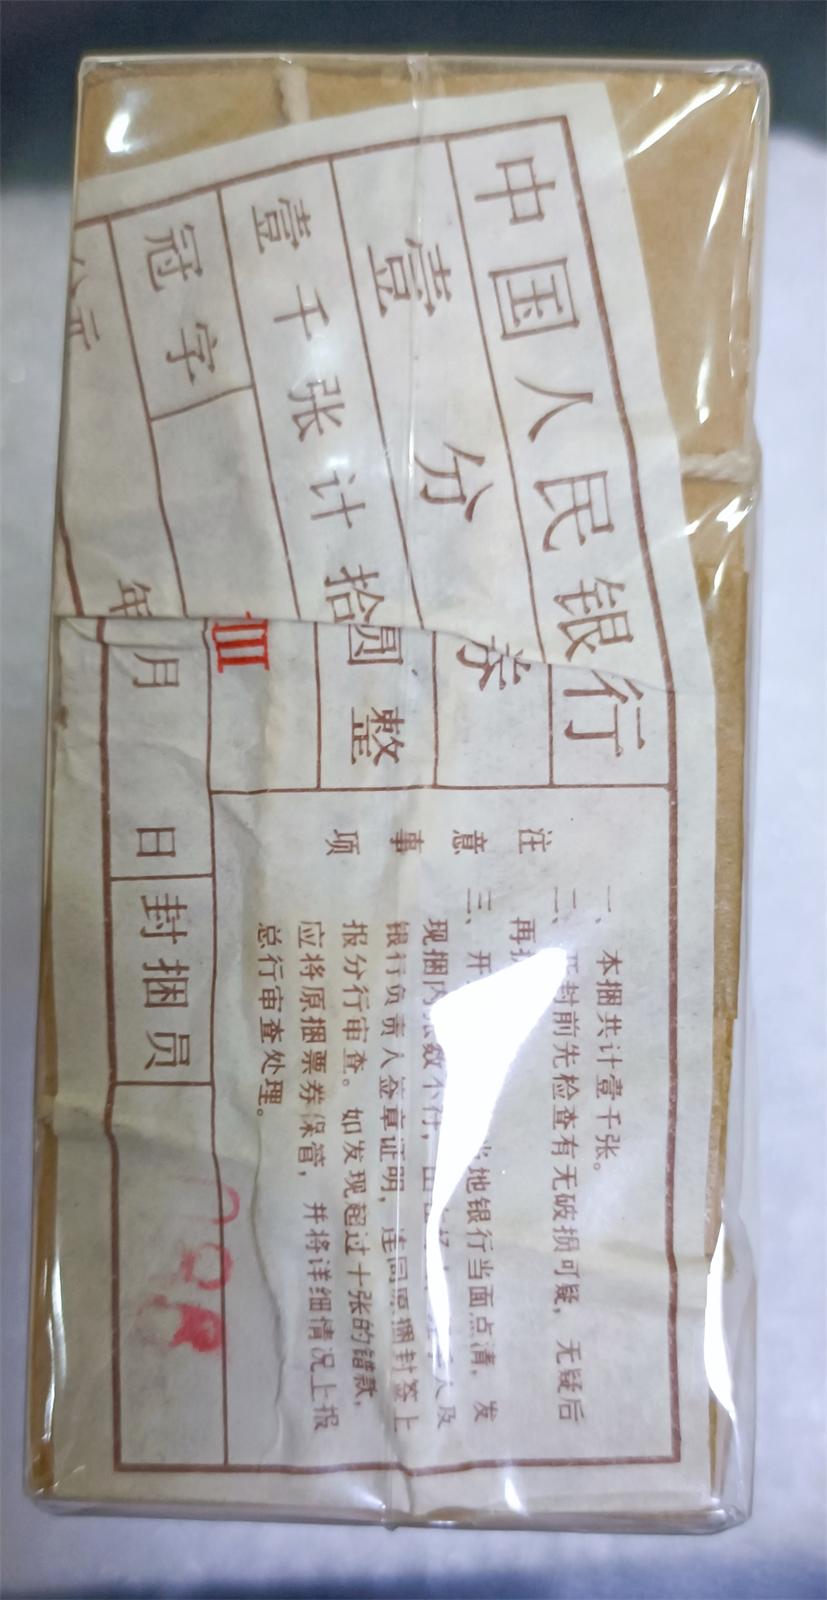 中国人民银行
壹分券
壹千张计拾圆整
冠字
III
公元
年月日
封捆员
注意事项
一、本捆共计壹千张。
二、开封前先检查有无破损可疑，无疑后
再
三、开 当地银行当面点清，发
现捆内张数不符， 人及
银行负责人签章证明，连同原捆封签上
报分行审查。如发现超过十张的错款，
应将原捆票券保管，并将详细情况上报
总行审查处理。